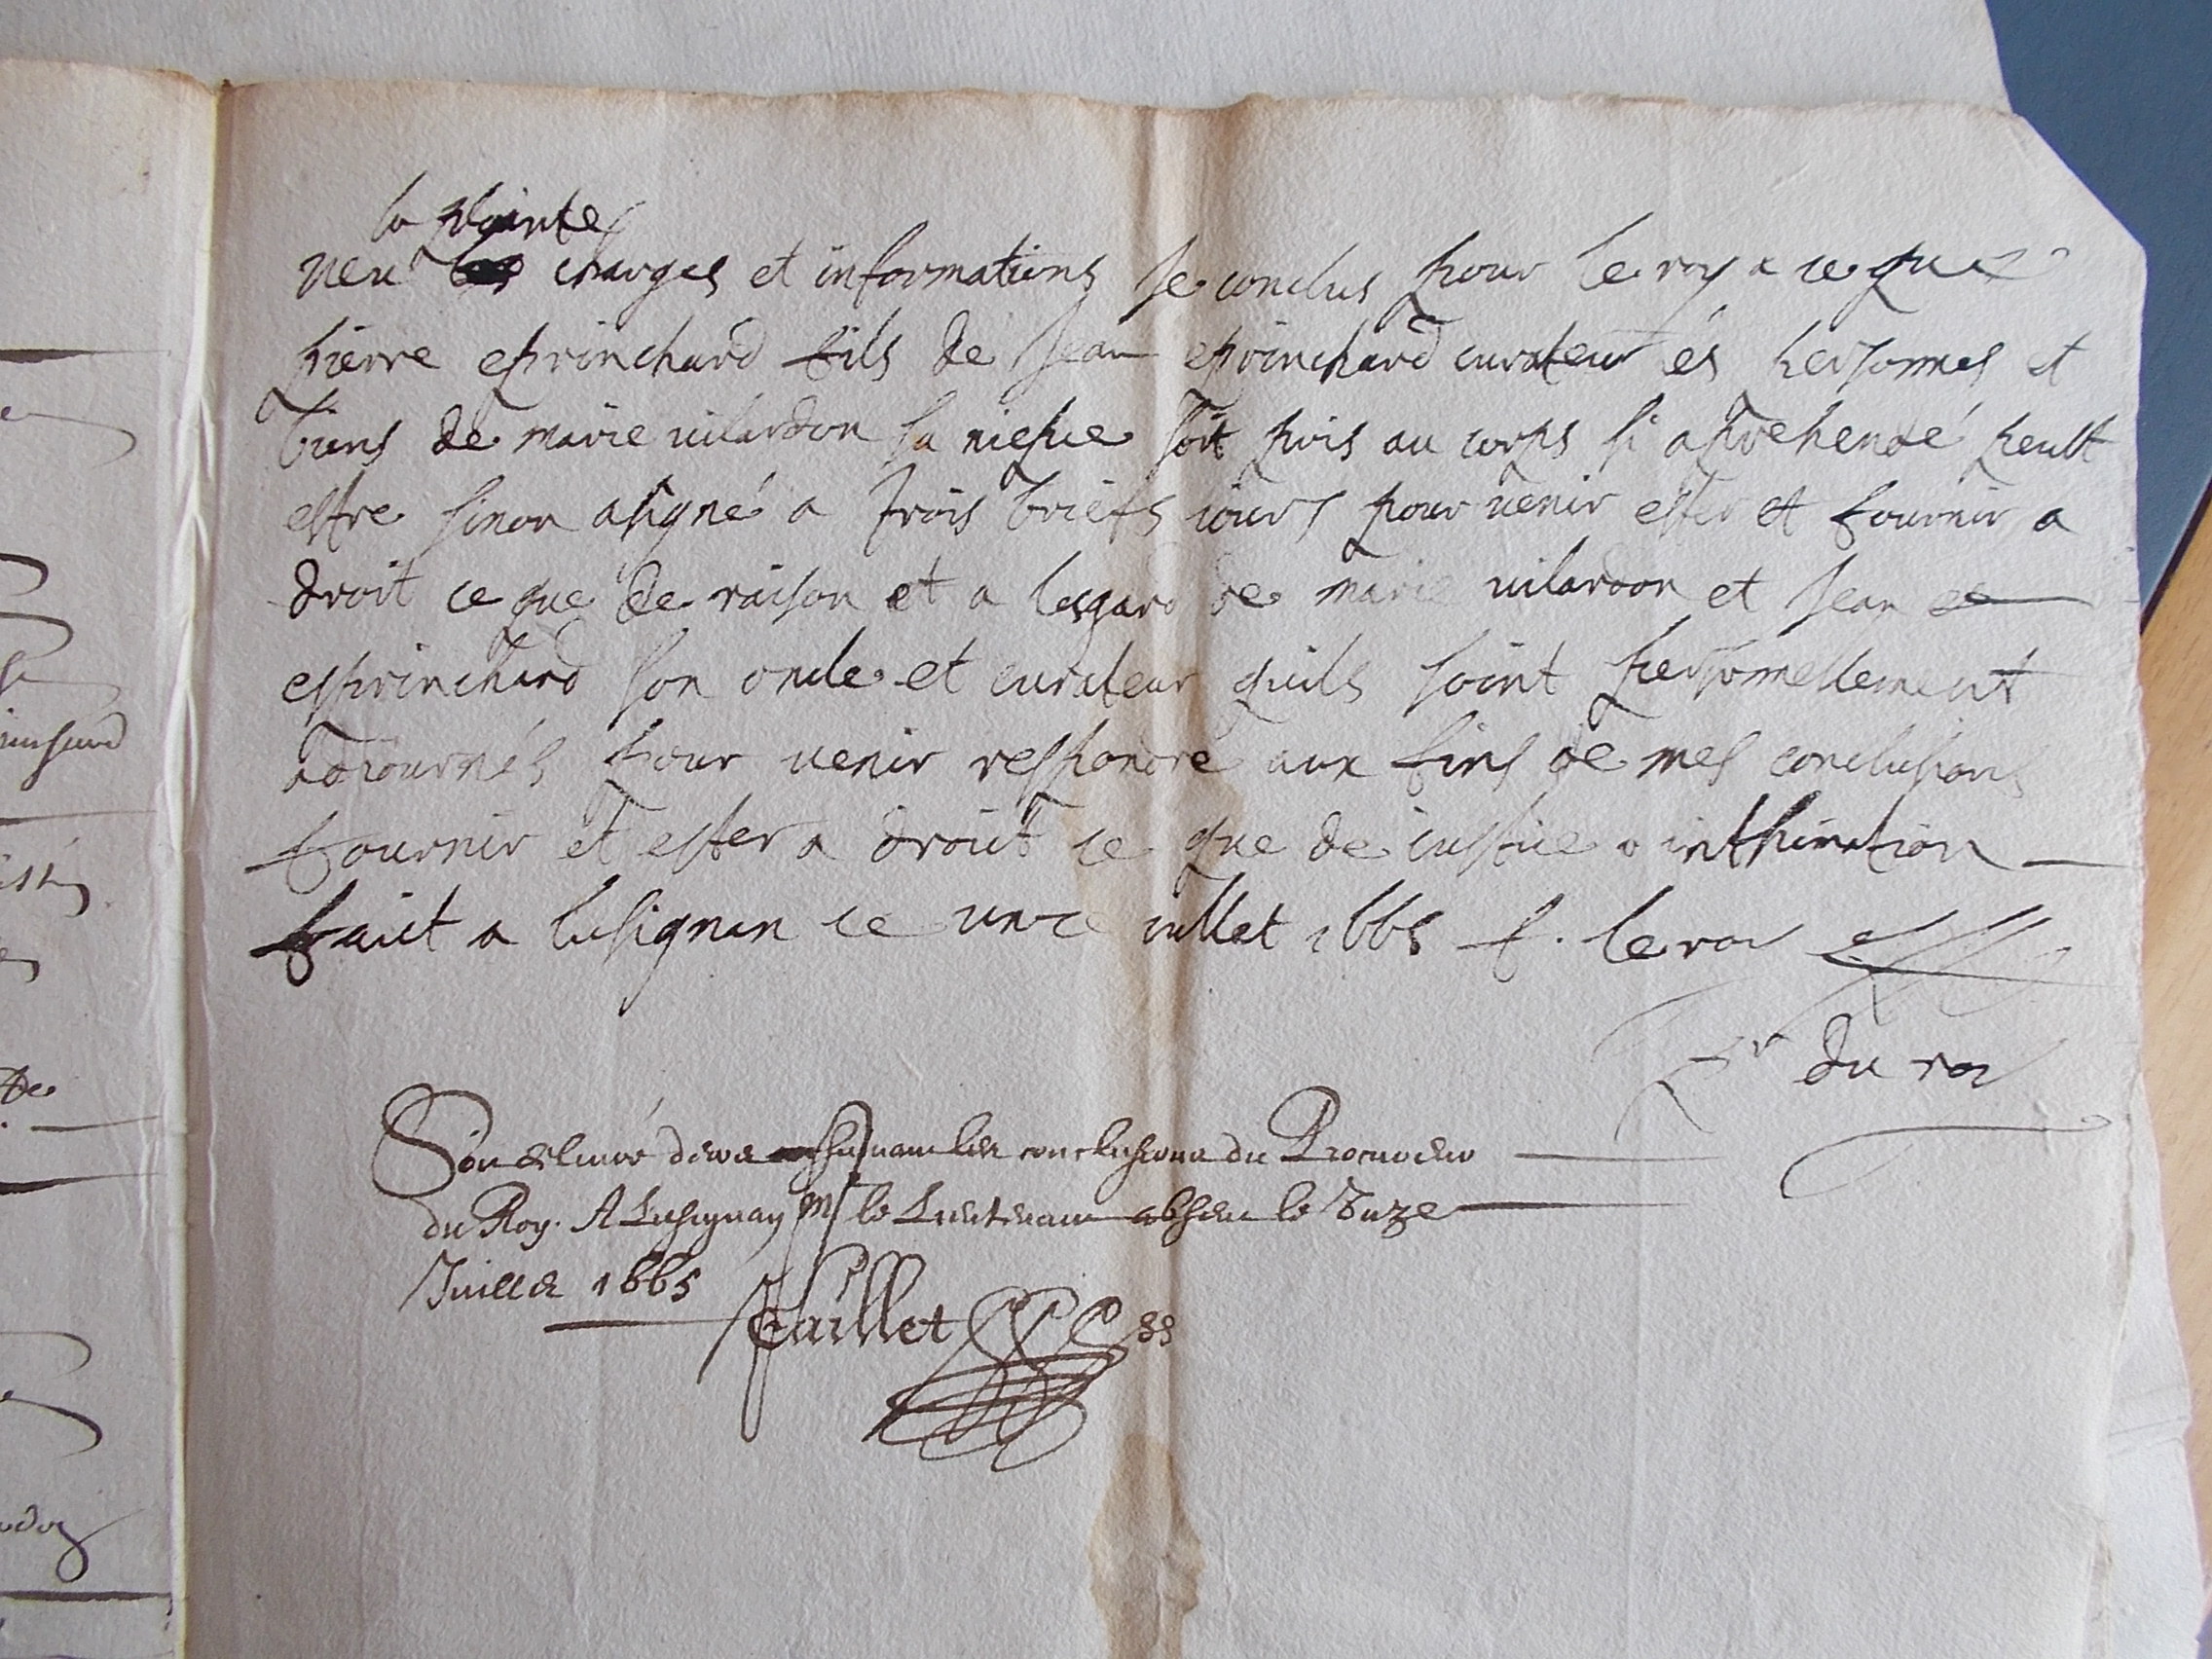 la plainte
veu les charges et informations je conclus pour le roy a ce que
pierre eprinchard fils de jean eprinchard curateur és personnes et
biens de marie vilardon sa niepce soit pris au corps si aprehendé peult
estre sinon asigné a trois briefs iours pour venir ester et fournir a
droit ce que de raison et a lesgard de marie vilardon et jean
esprinchard son oncle et curateur quils soint personnellement
adiournés pour venir respondre aux fins de mes conclusions
fournir et ester a droit ce que de iustice o inthimation
faict a lusignan ce unze iullet 1665 f. le roy
pr du roy
Soit delivré decret suivant les conclusions du Procureur
du Roy. A Lusignan Mr le Lieutenant absent le Unze
Juillet 1665
Jaillet